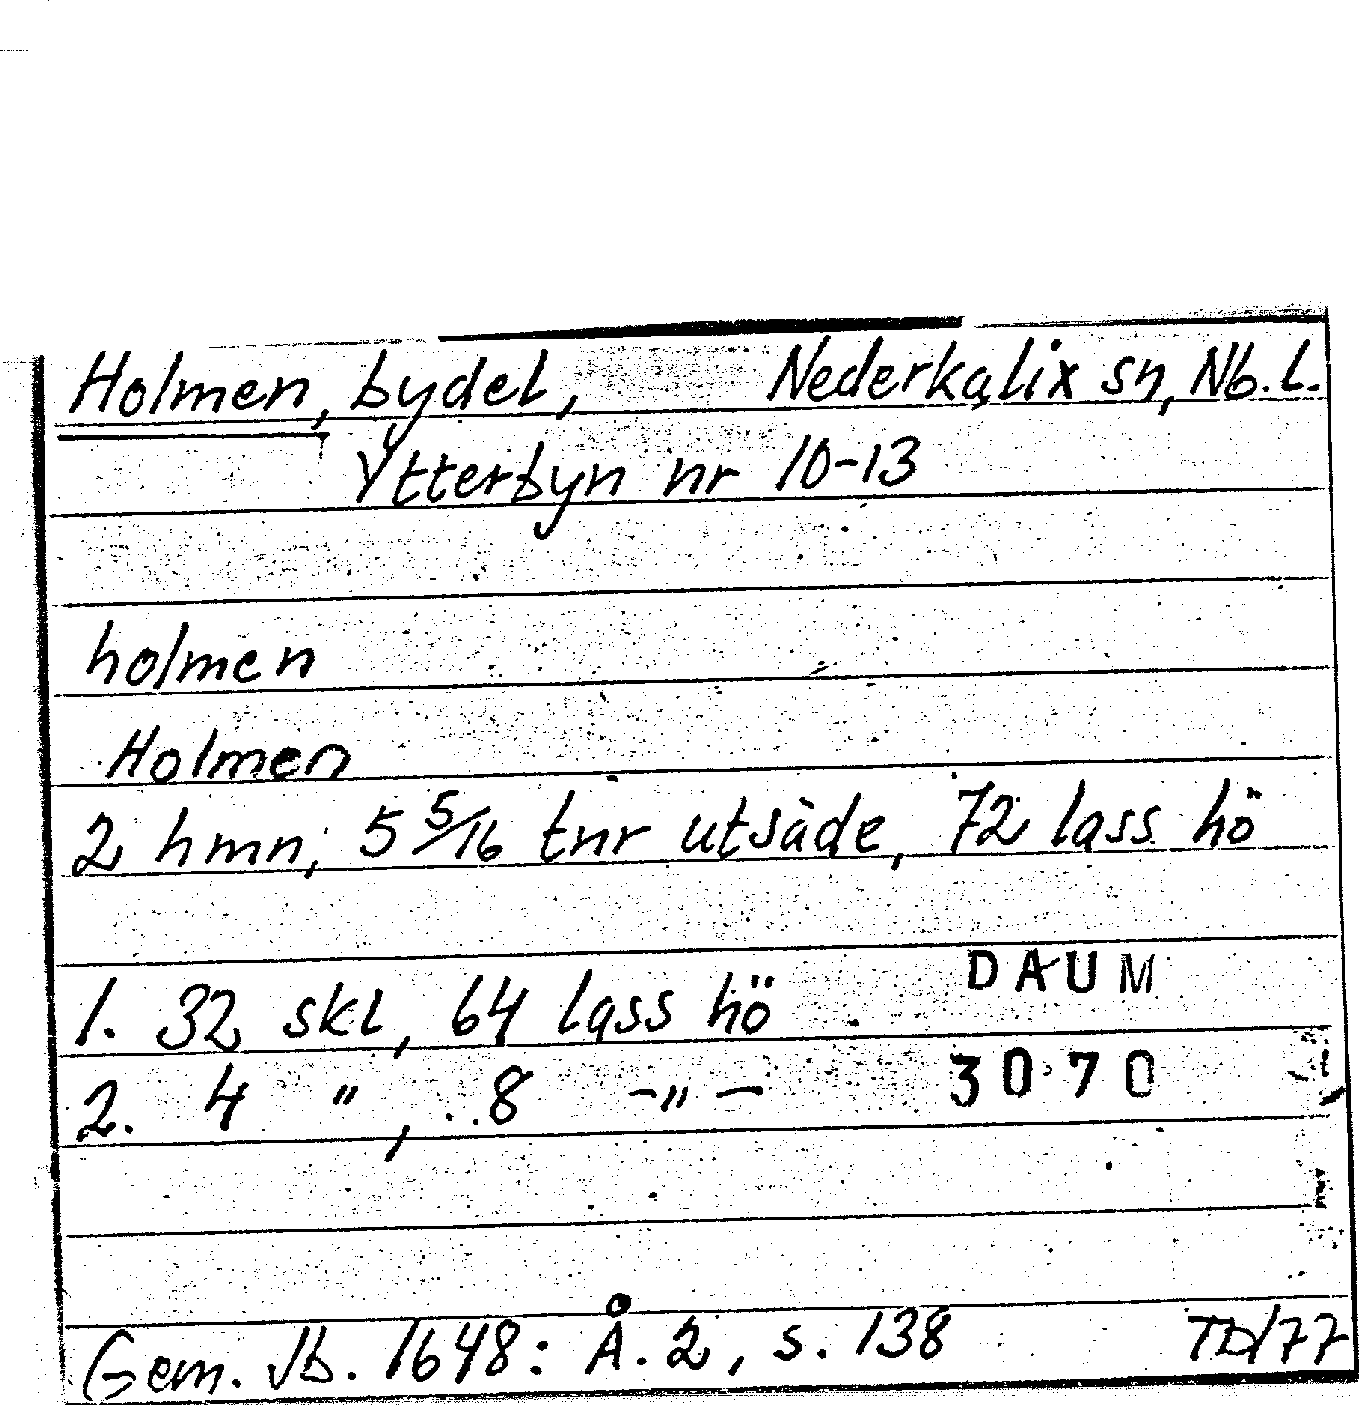 Holmen, bydel, Nederkalix sn, Nb. l.
Ytterbyn nr 10-13
holmen
Holmen
2 hmn; 5 5/16 tnr utsäde, 72 lass hö
1. 32 skl, 64 lass hö DAUM
2. 4 ", 8 -"- 3070
Gem. Jb. 1648: Å. 2, s. 138 TD/77